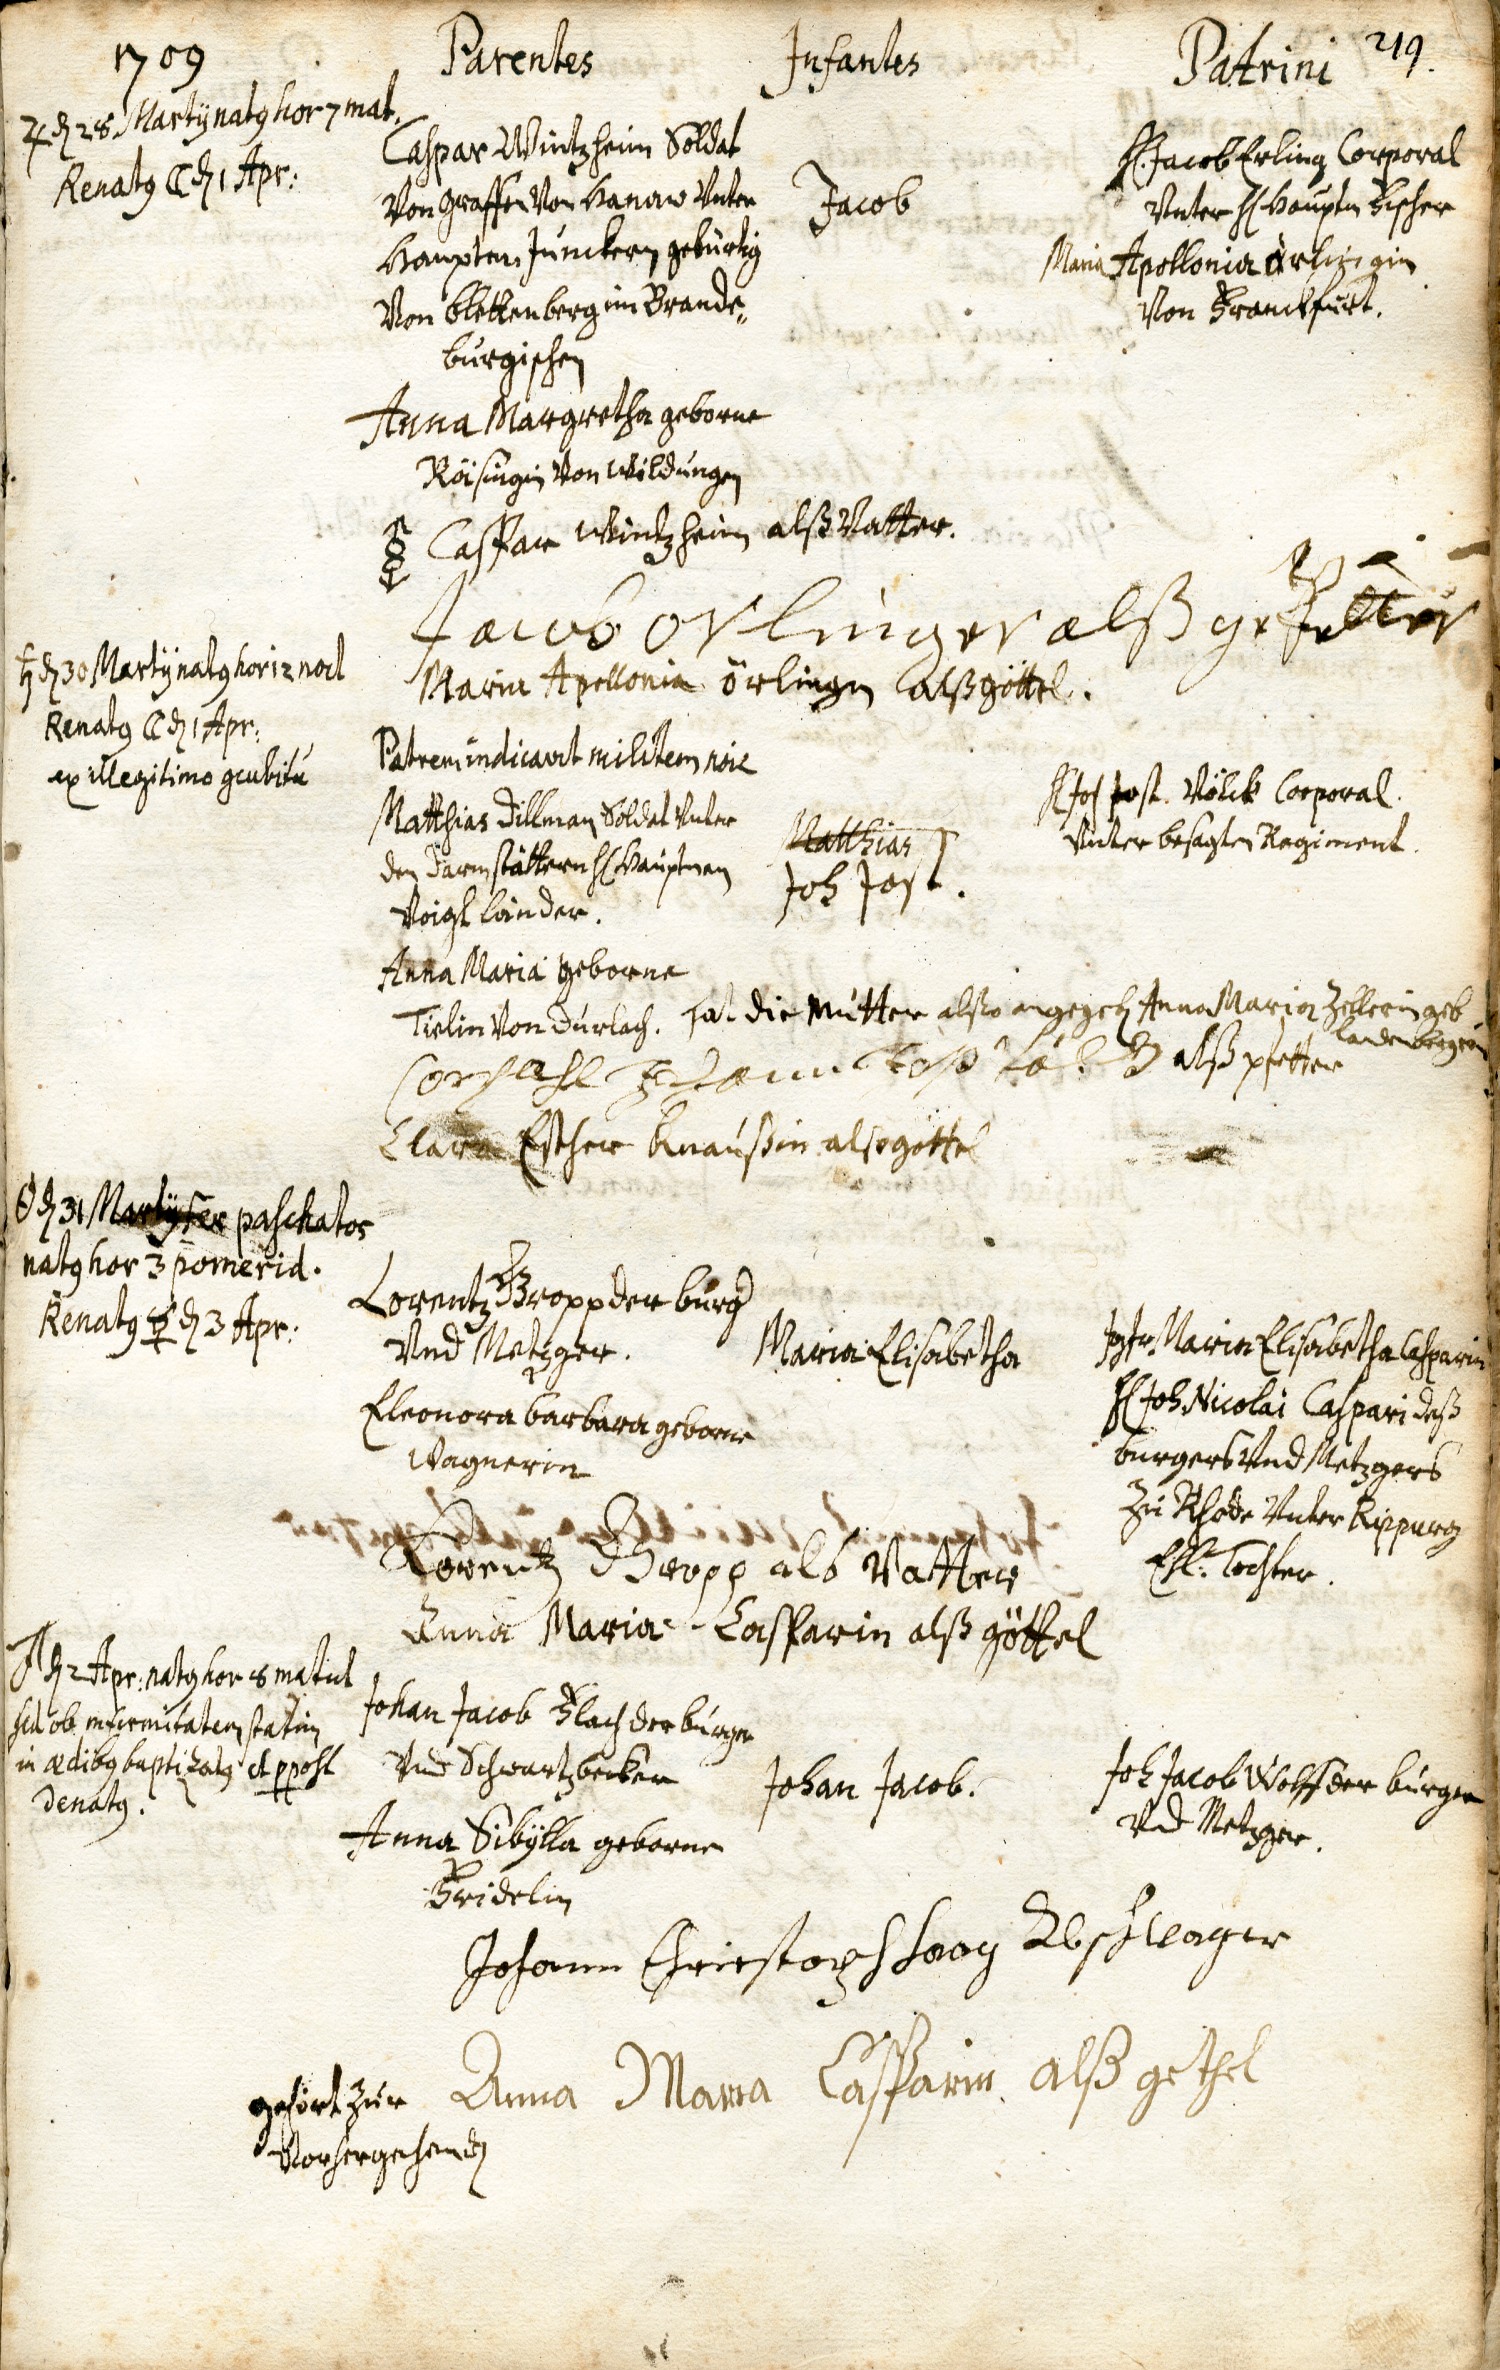 1709 Parentes Infantes Patrini 219.
♃ d 28 Martij natg hor 7 mat.
Renatg ☾ d 1 Apr:
Caspar Wintzheim Soldat
Von Graffen Von Hanaw Vnter
Hauptm. Junckern gebürtig
Von blettenberg im Brande„
burgischen
Anna Margretha geborne
Von Wildungen
Jacob
H. Jacob Erling Corporal
Vnter H Hauptm Fischer
Maria Apollonia örlingin
Von Franckfurt.
Casspar Wintzheim alß Vatter.
Jacob orlinger alß gefetter
Maria Apollonia örlingin alß göttel.
♄ d 30 Martij natg hor 12 noct
Renatg ☾ d 1 Apr:
ex illegitimo gcubitu
Patrem indicavit militem noie
Matthias Dillman Soldat Vnter
den Darmstättern H Hauptman
Voigtländer.
Anna Maria geborne
Tielin Von Durlach. hat die Mutter also angegeb Anna Maria Zellerin geb
Landenbergerin
Matthias
Joh Jost.
H Joh Jost. Völck Corporal.
Vnter besagten Regiment.
alß pfetter
Clara Esther Knaußin alß göttel
☉ d 31 Martij fer paschatos
natg hor 3 pomerid.
Renatg ☿ d 3 Apr:
Lorentz Gropp der burg
Vnd Metzger.
Eleonora barbara geborne
Wagnerin
Maria Elisabetha
Jgfr. Maria Elisabetha Casparin
H Joh Nicolai Caspari deß
burgers Vnd Metzgers
Zu Rhode Vnter Rippurg
Ehl. Tochter.
Lorentz Gropp als Vatter
Anna Maria Casparin alß göttel
♂ d 2 Apr: natg hor 8 matut
sed ob infirmitatem statim
in ædibg baptizatg et p post
denatg.
Johan Jacob Flach der burger
Vnd Schwartzbecker
Anna Sibÿlla geborne
Fridelin
Johan Jacob.
Joh Jacob Wolff der burger
Vd Metzger.
Johann Christoph
Anna Maria Casparin alß gethel
gehört zur
Vorhergehendn